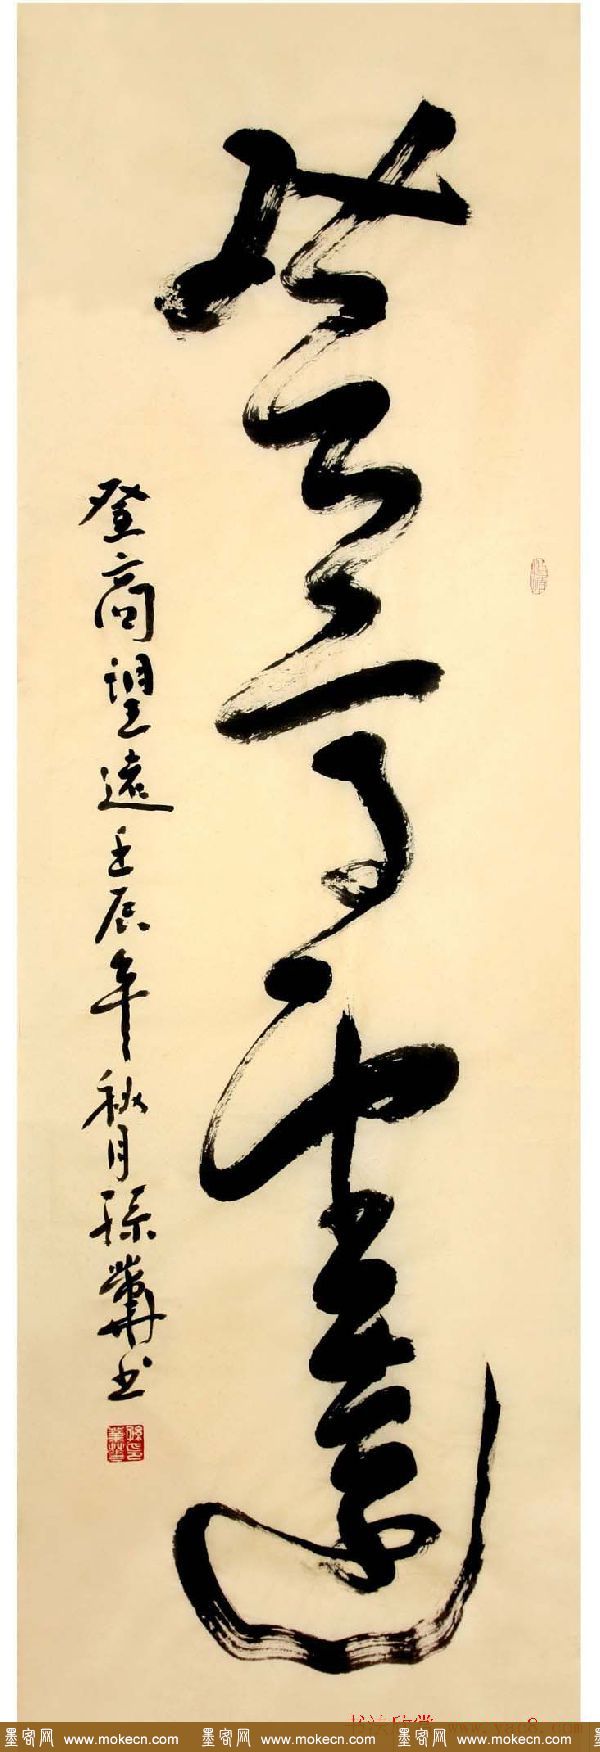 登高望遠
登高望遠壬辰年秋月孫華書
书法欣赏 www.yac8.com
墨客网 www.mokecn.com 墨客网 www.mokecn.com 墨客网 www.mokecn.com